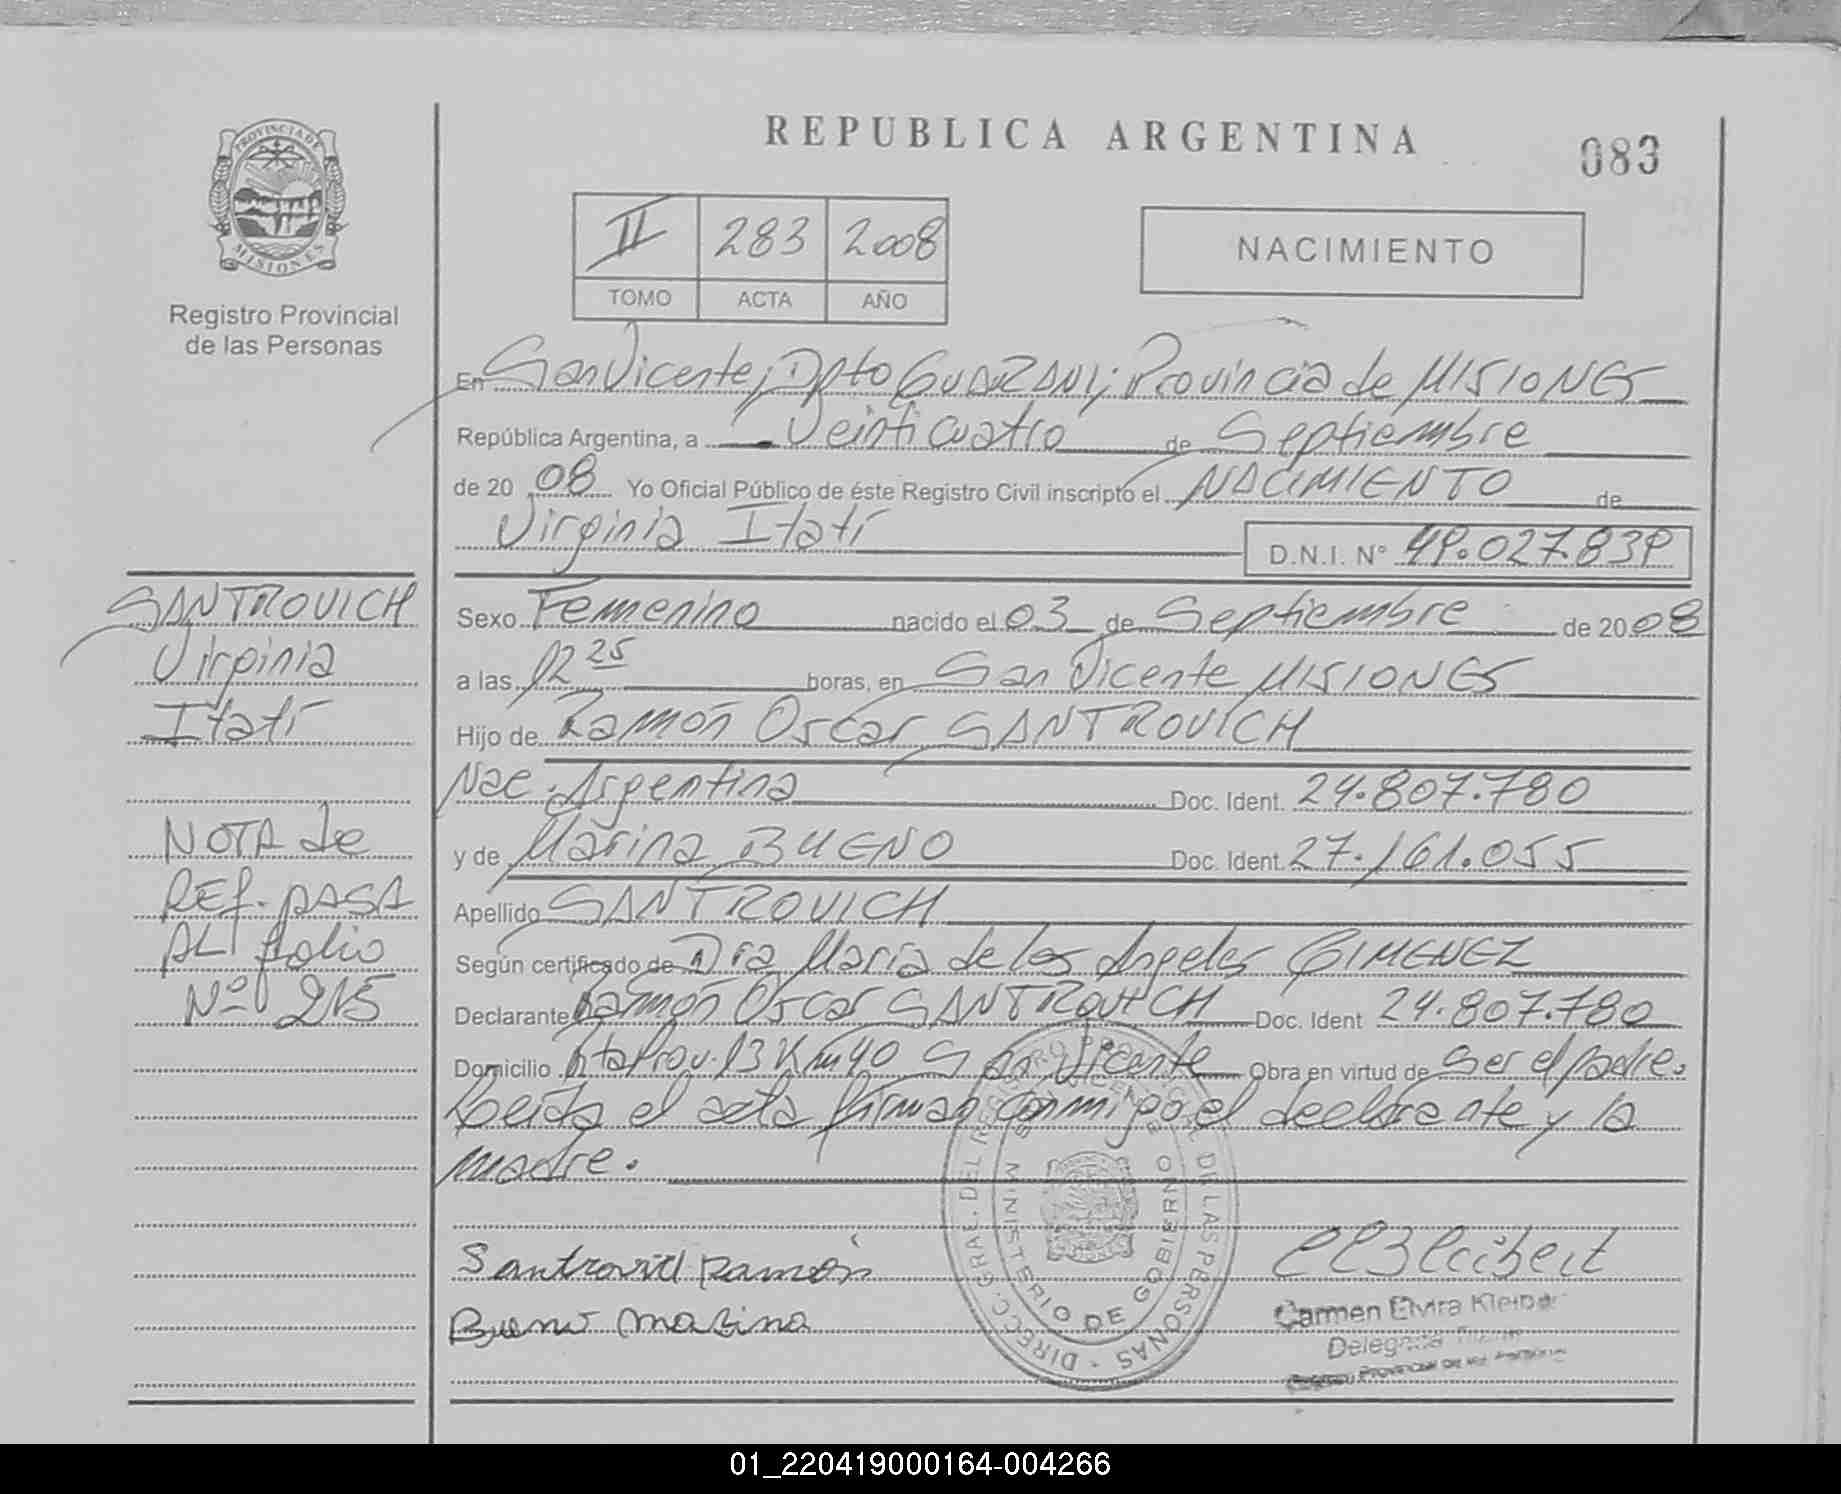 REPUBLICA ARGENTINA
083
PROVINCIA DE
MISIONES
Registro Provincial
de las Personas
II 283 2008
TOMO ACTA AÑO
NACIMIENTO
En San Vicente, Dpto GUARANI; Provincia de MISIONES
República Argentina, a Veinticuatro de Septiembre
de 2008 Yo Oficial Público de éste Registro Civil inscripto el NACIMIENTO de
Virginia Itatí
D.N.I. N° 49.027.839
SANTROVICH
Virginia
Itatí
NOTA de
REF. PASA
AL folio
Nº 215
Sexo Femenino nacido el 03 de Septiembre de 2008
a las 12 25 horas, en San Vicente MISIONES
Hijo de Ramón Oscar SANTROVICH
Nac. Argentina Doc. Ident. 24.807.780
y de Marina BUENO Doc. Ident. 27.161.055
Apellido SANTROVICH
Según certificado de Dra María de los Angeles GIMENEZ
Declarante Ramón Oscar SANTROVICH Doc. Ident 24.807.780
Domicilio Ruta Prov. 13 Km 40 San Vicente Obra en virtud de ser el padre.
Leída el acta firman conmigo el declarante y la
madre.
DIRECC. GRAL. DEL REGISTRO PROVINCIAL DE LAS PERSONAS
MINISTERIO DE GOBIERNO
Santrovich Ramón
Bueno Marina
Carmen Elvira
Delegada
Provincial de las Personas
01_220419000164-004266